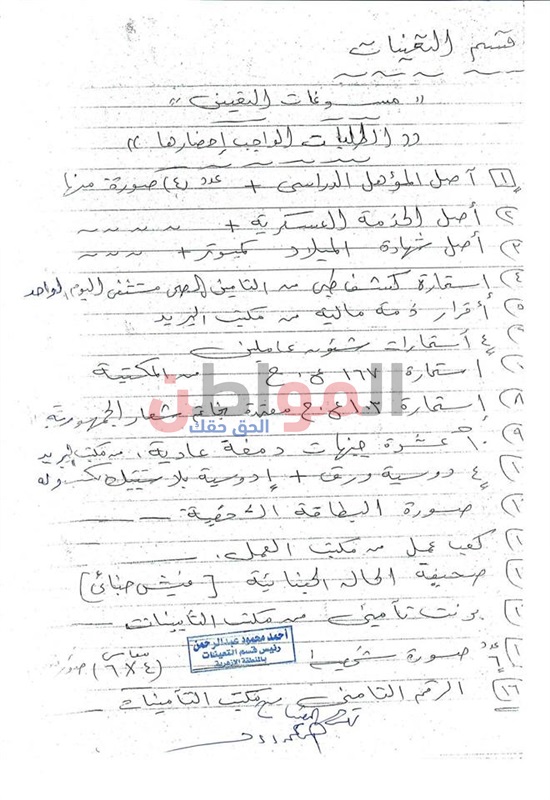 قسم التعينات
" مسوغات التعين "
" الطلبات الواجب إحضارها "
١ أصل المؤهل الدراسى + عدد (٤) صورة منها
٢ أصل الخدمة العسكرية + ~ ~ ~ ~
٣ أصل شهادة الميلاد كمبوتر + ~ ~ ~
٤ إستمارة كشف طبى من التامين الصحى مستشفى اليوم الواحد
٥ أقرار ذمة مالية من مكتب البريد
٤ أستمارات شئون عاملين
إستمارة ١٦٧ ع.ح من المكتبة
٨ إستمارة ١٠٣ ع.ح معتمدة بخاتم شعار الجمهورية
٩ عشرة جنيهات دمغة عادية، من مكتب البريد
٤ دوسية ورق + دوسية بلاستيك كبسوله
صورة البطاقة الشخصية
كعب عمل من مكتب العمل.
صحيفة الحالة الجنائية [فيش جنائى]
برنت تأمينى من مكتب التأمينات
عدد ٦ صورة شخصية مقاس (٤×٦)
١٦ الرقم التامينى من مكتب التأمينات
المواطن
الحق حقك
احمد محمود عبدالرحمن
رئيس قسم التعينات
بالمنطقة الازهرية